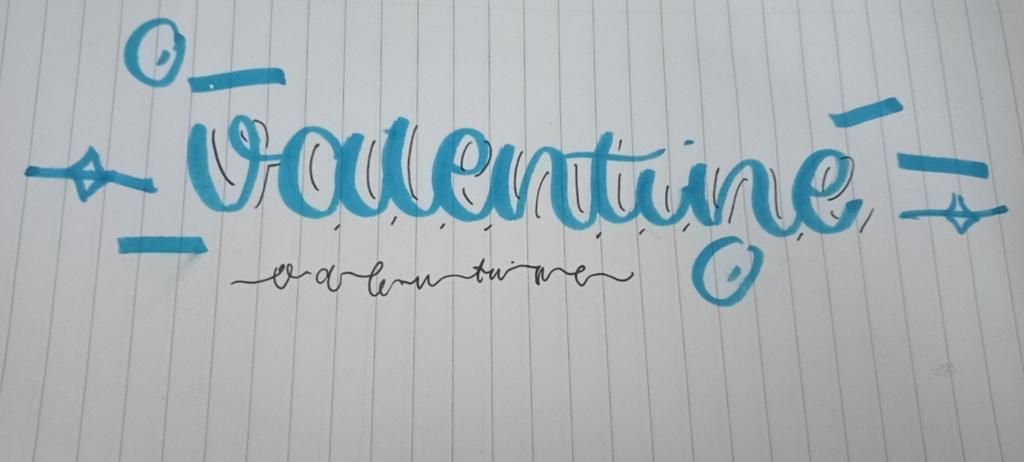 valentine
valentine